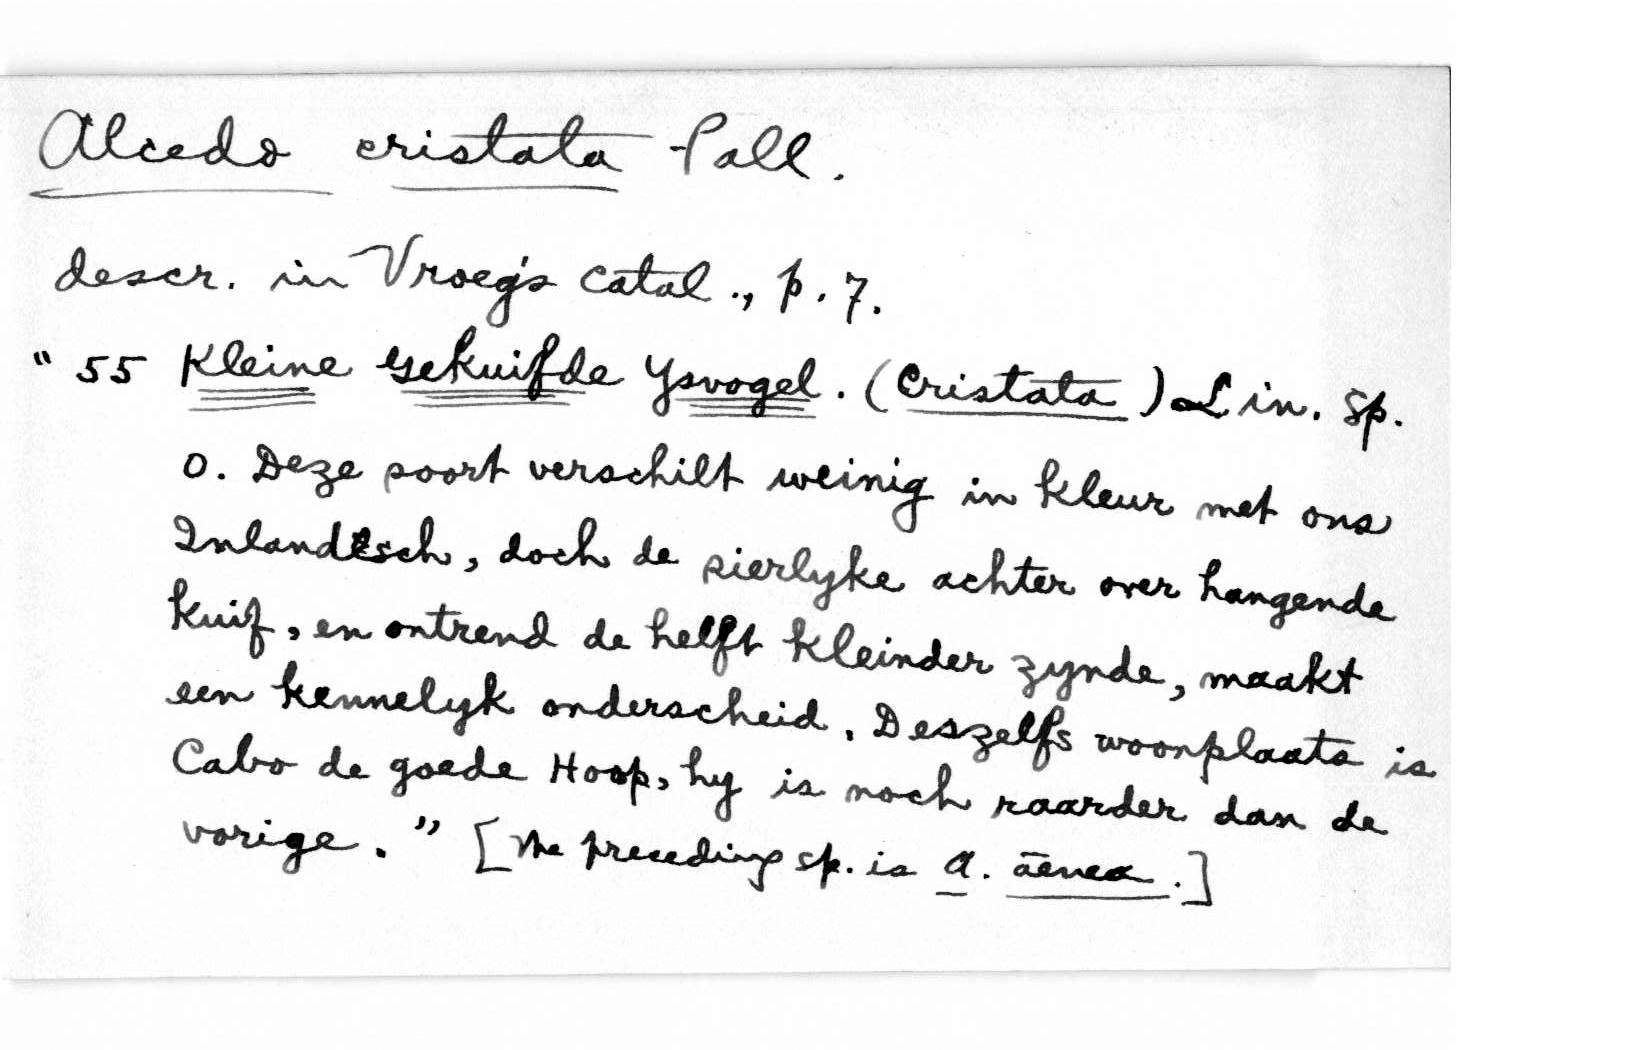 Alcedo cristata Pall.
descr. in Vroeg's Catal., p. 7.
" 55 Kleine Gekuifde Ysvogel. (Cristata) Lin. Sp.
0. Deze soort verschilt weinig in kleur met ons
Inlandisch, doch de sierlyke achter over hangende
Kuif, en ontrend de helft kleinder zynde, maakt
een kennelyk onderscheid. Deszelfs woonplaats is
Cabo de goede Hoop, hy is noch raarder dan de
vorige." [The preceding sp. is A. aenea.]